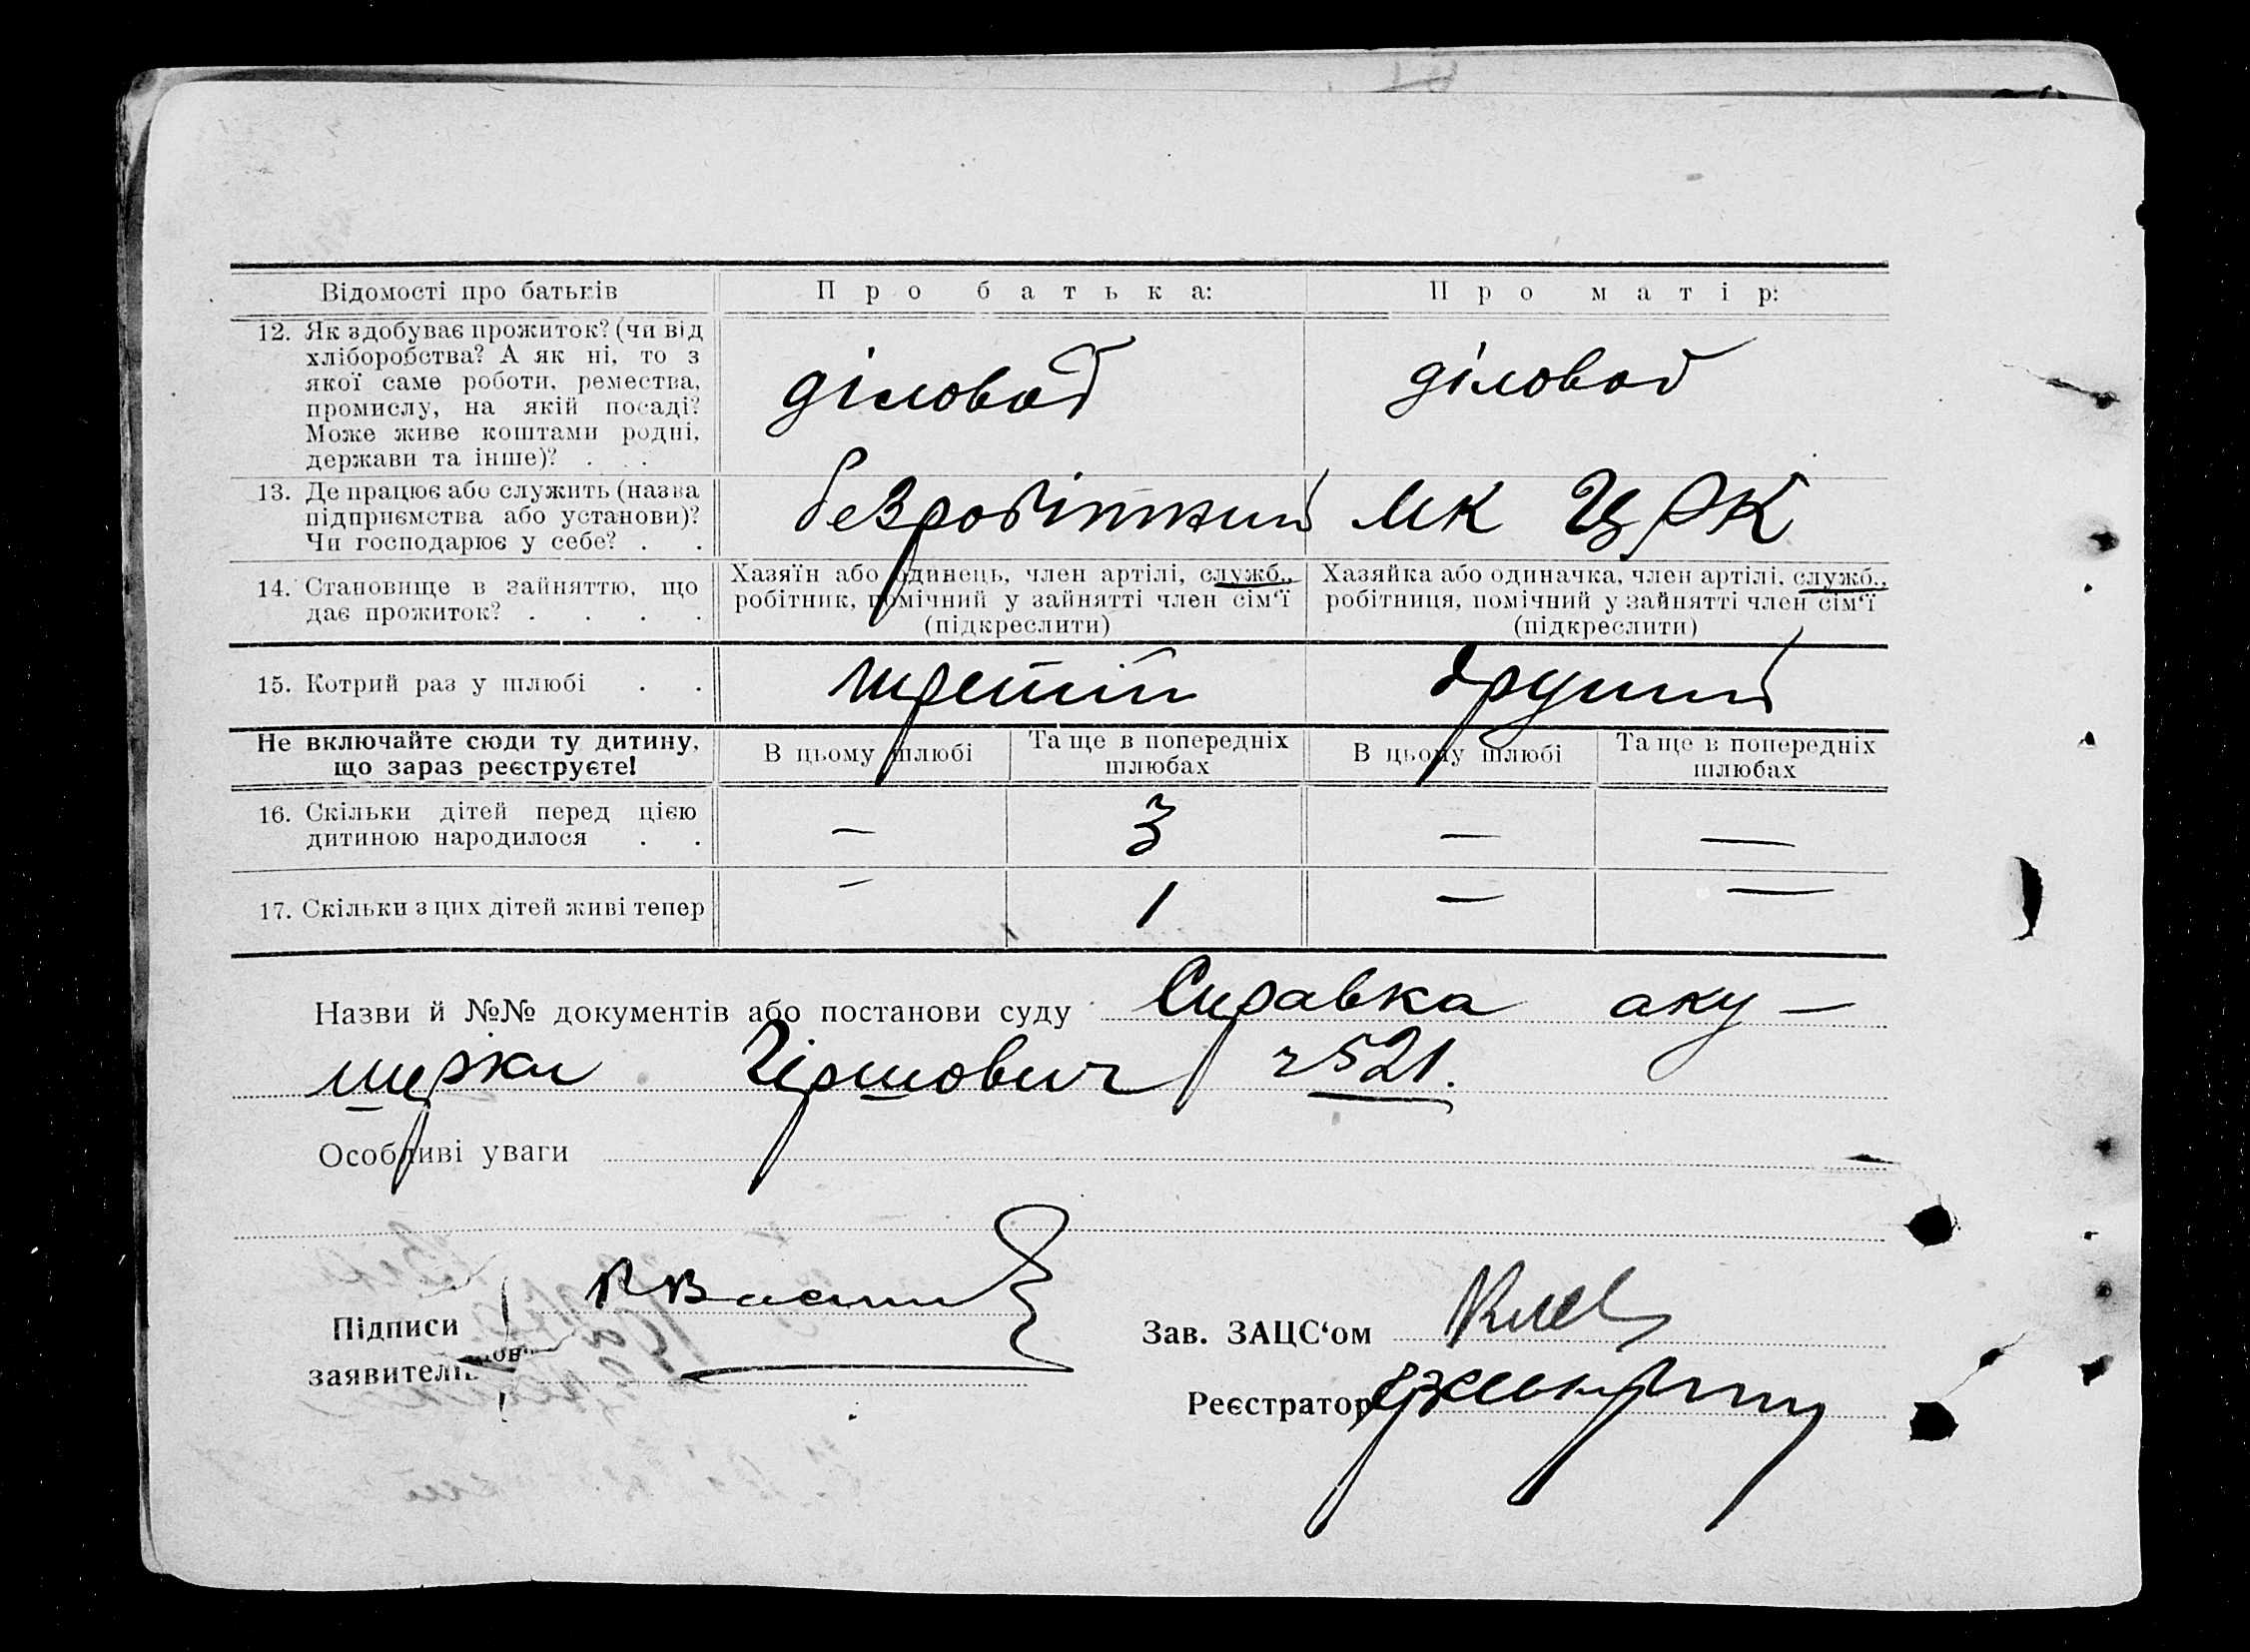 Відомості про батьків
Про батька:
Про матір:
12. Як здобуває прожиток? (чи від
хліборобства? А як ні, то з
якої саме роботи, ремества,
промислу, на якій посаді?
Може живе коштами родні,
держави та інше)? . . .
діловод
діловод
13. Де працює або служить (назва
підприємства або установи)?
Чи господарює у себе? . .
безробітний
МК ЦРК
14. Становище в зайняттю, що
дає прожиток? . . . .
Хазяїн або одинець, член артілі, служб.,
робітник, помічний у зайнятті член сім'ї
(підкреслити)
Хазяйка або одиначка, член артілі, служб.,
робітниця, помічний у зайнятті член сім'ї
(підкреслити)
15. Котрий раз у шлюбі . .
третій
другий
Не включайте сюди ту дитину,
що зараз реєструєте!
В цьому шлюбі
Та ще в попередніх
шлюбах
В цьому шлюбі
Та ще в попередніх
шлюбах
16. Скільки дітей перед цією
дитиною народилося . .
— 3 — —
17. Скільки з цих дітей живі тепер
— 1 — —
Назви й №№ документів або постанови суду Справка аку-
шерки Гіршович ч 521.
Особливі уваги
Підписи
заявителів
Зав. ЗАЦС'ом
Реєстратор